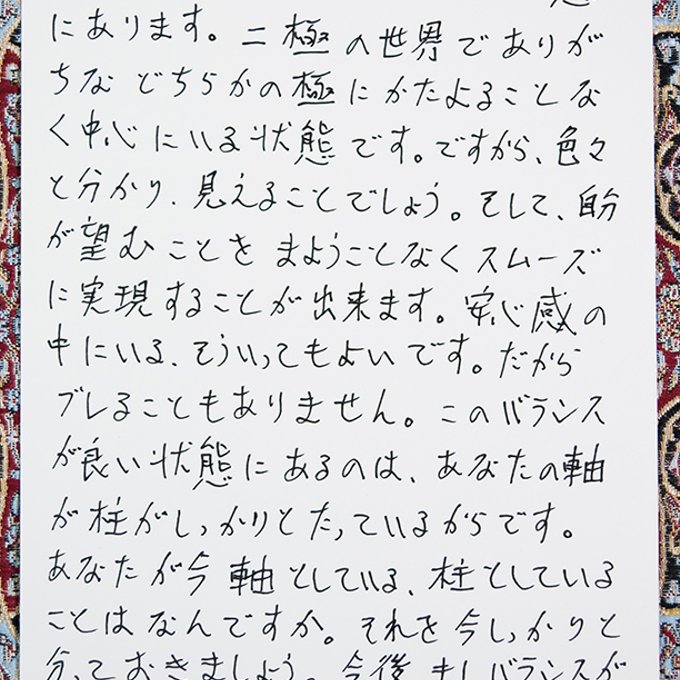 にあります。二極の世界でありが
ちなどちらかの極にかたよることな
く中心にいる状態です。ですから、色々
と分かり、見えることでしょう。そして、自分
が望むことをまようことなくスムーズ
に実現することが出来ます。安心感の
中にいる、そういってもよいです。だから
ブレることもありません。このバランス
が良い状態にあるのは、あなたの軸
が柱がしっかりとたっているからです。
あなたが今軸としている、柱としている
ことはなんですか。それを今しっかりと
分っておきましょう。今後もしバランスが